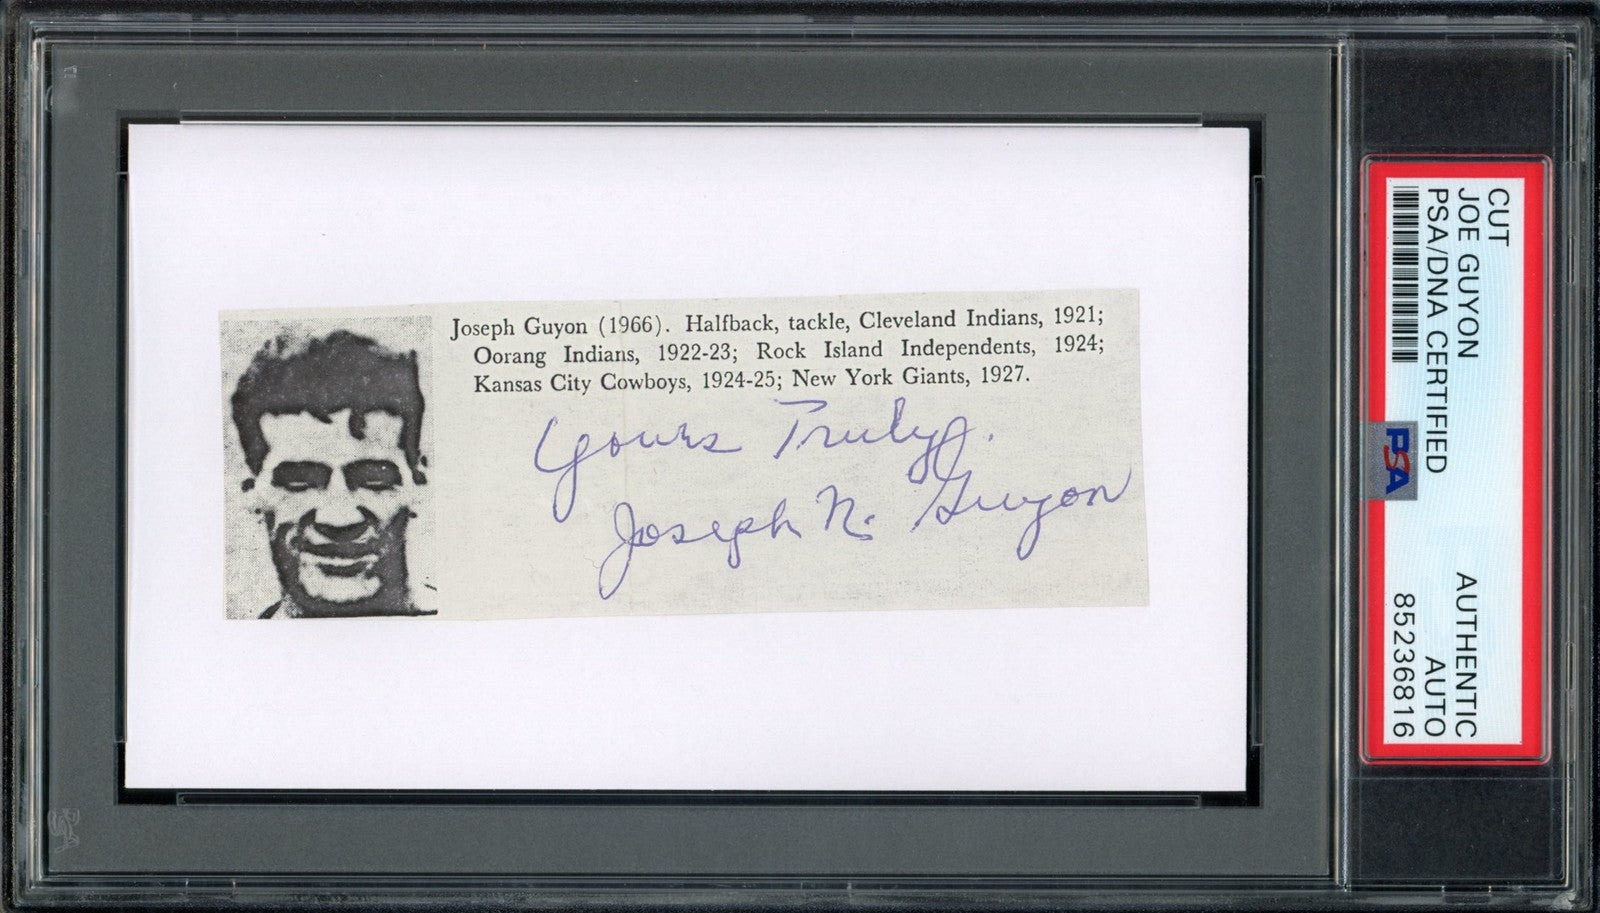 Joseph Guyon (1966). Halfback, tackle, Cleveland Indians, 1921;
Oorang Indians, 1922-23; Rock Island Independents, 1924;
Kansas City Cowboys, 1924-25; New York Giants, 1927.
Yours Truly.
Joseph N. Guyon
CUT
JOE GUYON
PSA/DNA CERTIFIED
AUTHENTIC
AUTO
85236816
PSA